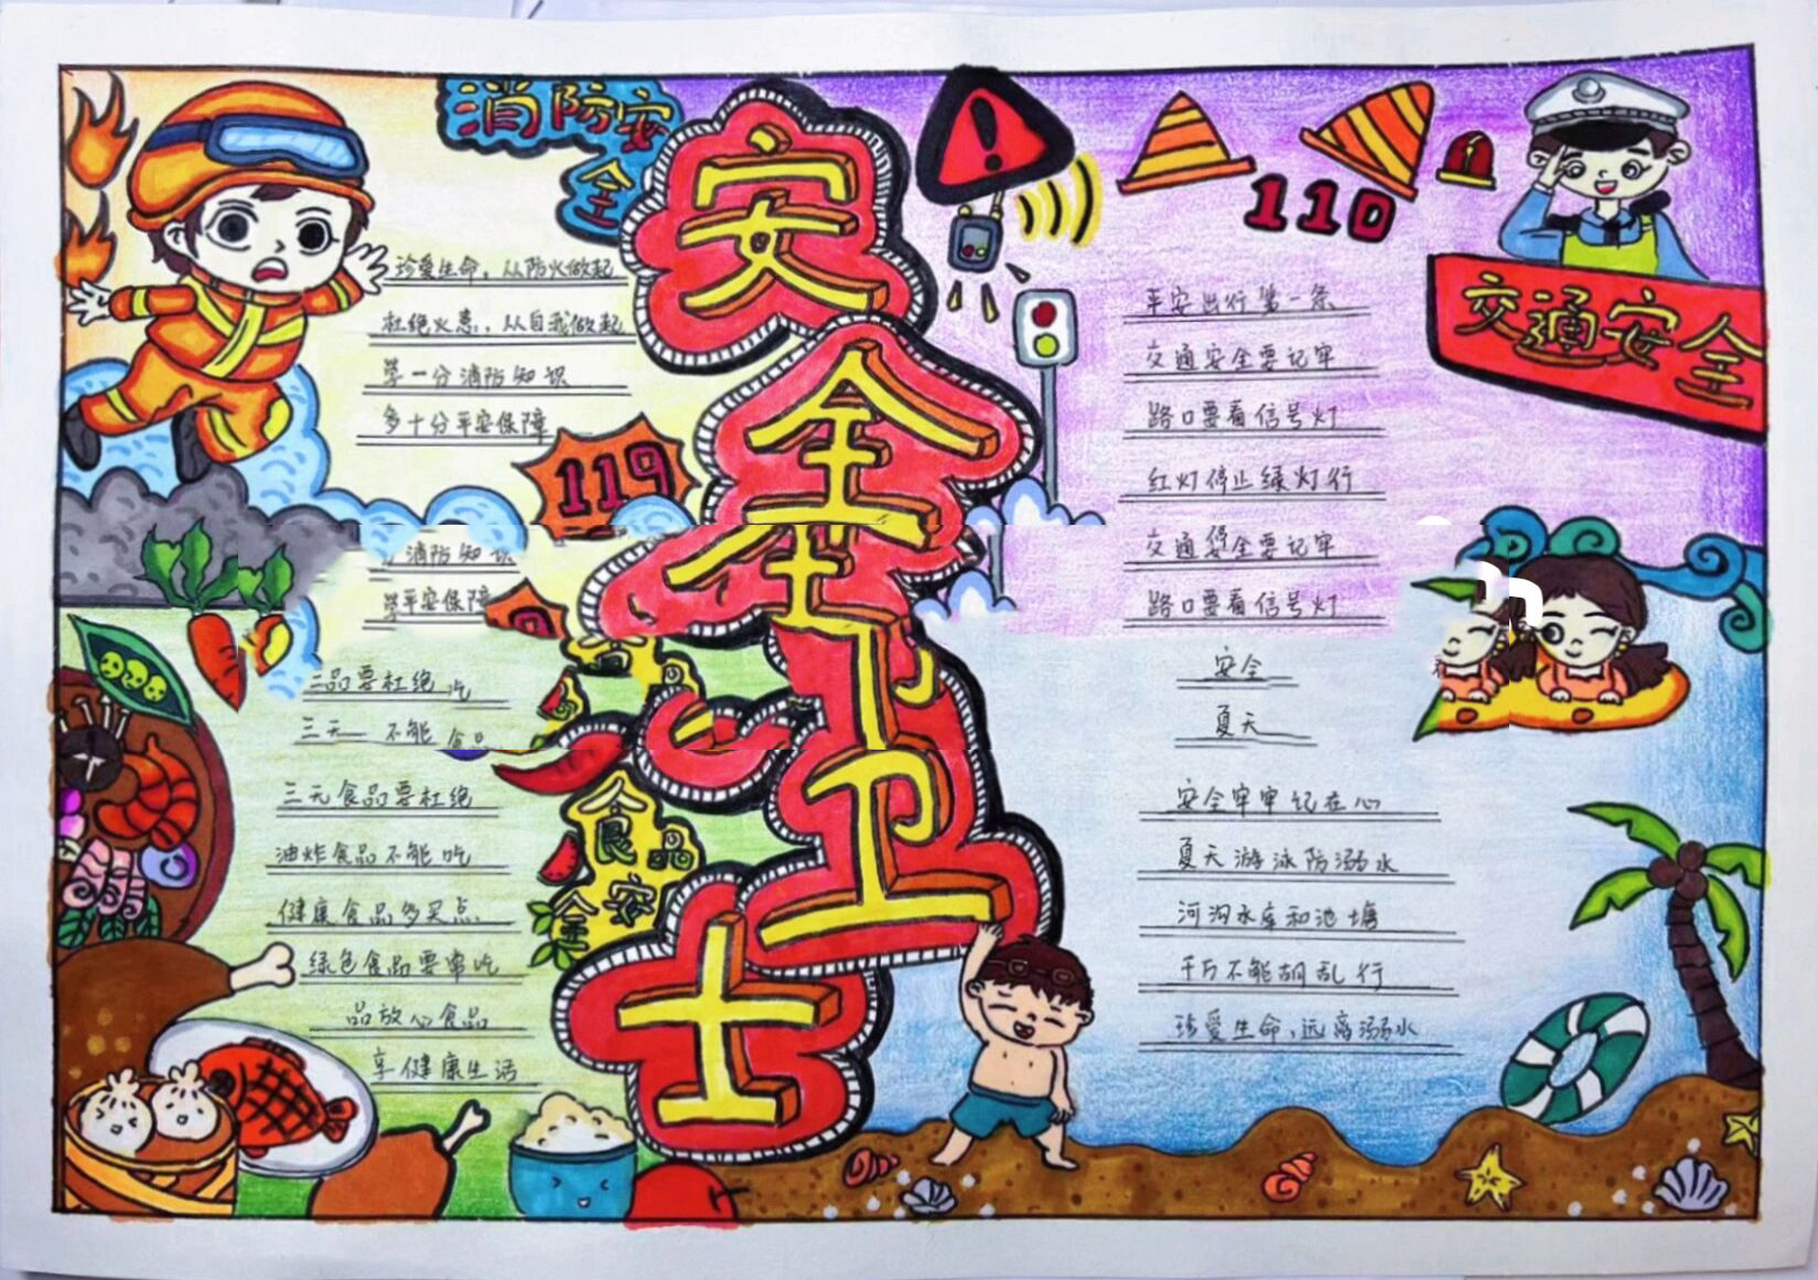 消防安
全
珍爱生命，从防火做起
杜绝火患，从自我做起
学一分消防知识
多十分平安保障
119
消防知识
学平安保障
三品要杜绝 吃
三无 不能 食品
三无食品要杜绝
油炸食品不能吃
健康食品多买点
绿色食品要常吃
品放心食品
享健康生活
食品
安
全
安
全
卫
士
110
交通安全
平安出行第一条
交通安全要记牢
路口要看信号灯
红灯停止绿灯行
交通安全要记牢
路口要看信号灯
安全
夏天
安全牢牢记在心
夏天游泳防溺水
河沟水库和池塘
千万不能胡乱行
珍爱生命，远离溺水